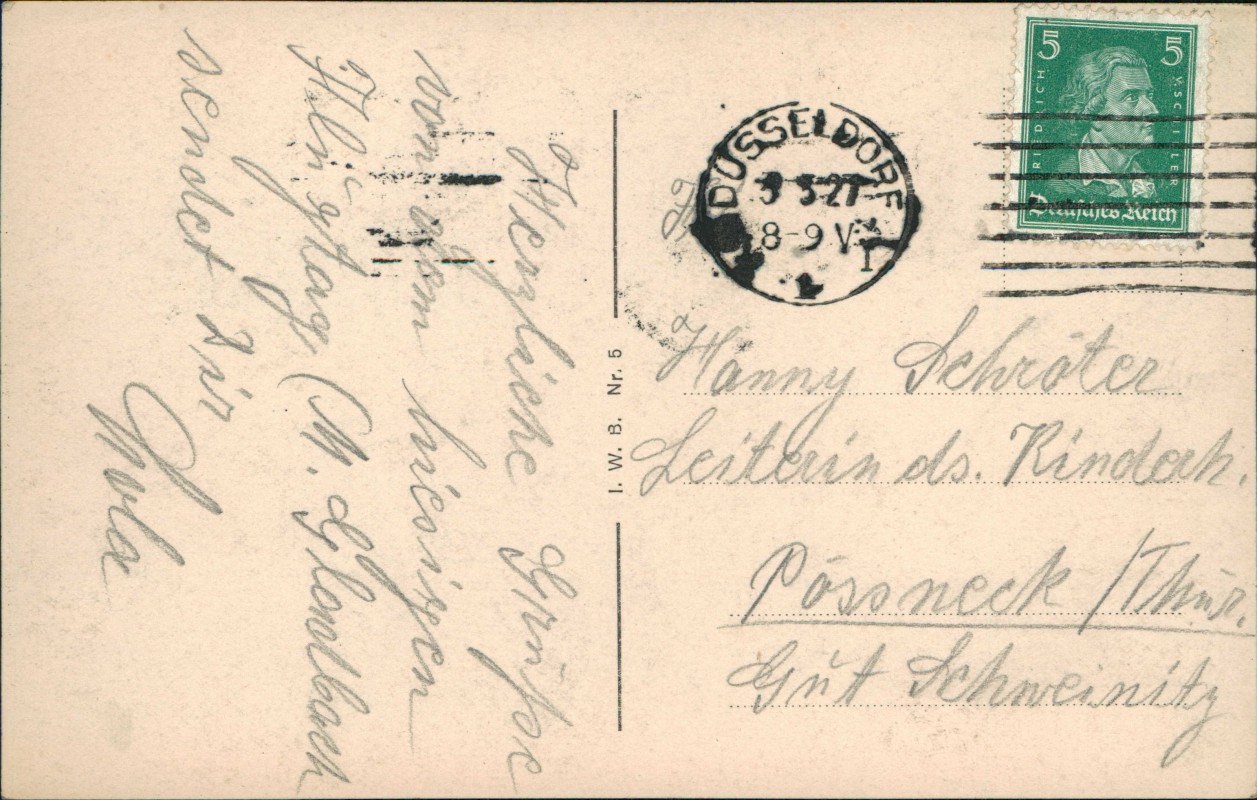 Herzliche Grüße
von dem hiesigen
Flugtag (M. Gladbach
sendet Dir
I. W. B. Nr. 5
DÜSSELDORF
3 5.27
8-9 V.
1
5 5
FRIEDRICH V. SCHILLER
Deutsches Reich
Hanny Schröter
Leiterin ds. Kinderh.
Pössneck /Thür.
Gut Schweinitz